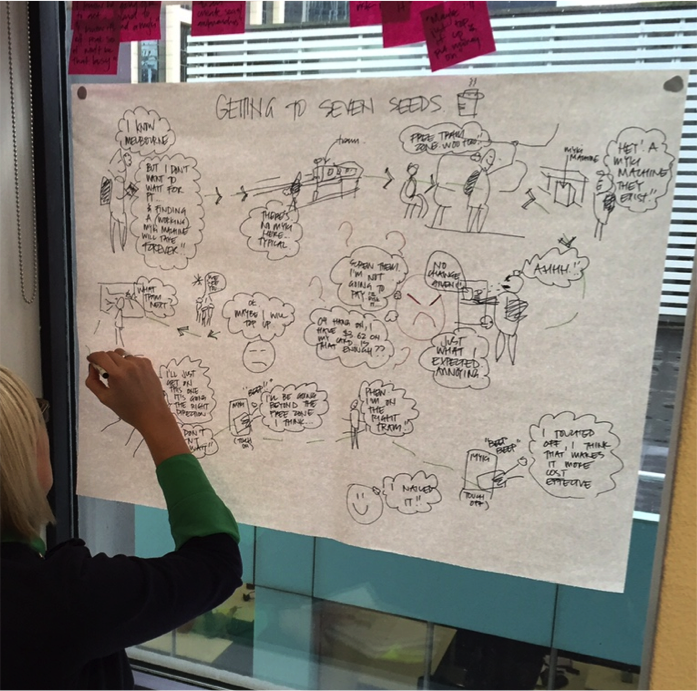 GETTING TO SEVEN SEEDS
I KNOW
MELBOURNE
BUT I DON'T
WANT TO
WAIT FOR
PT...
& FINDING
A (WORKING)
MYKI MACHINE
WILL TAKE
FOREVER"
tram
THERE'S
NO MYKI
HERE...
TYPICAL
FREE TRAM
ZONE WOO
MYKI
MACHINE
HEY! A
MYKI
MACHINE
THEY
EXIST!"
WHAT
TRAM
NEXT
OK
MAYBE I WILL
TOP UP
EVEN THEN
I'M NOT
GOING TO
PAY
OH HANG ON, I
HAVE $3.62 ON
MY
THAT CARD IS
ENOUGH??
NO
CHANGE
GIVEN!
JUST
WHAT I
EXPECTED
ANNOYING
AHHH!"
I'LL JUST
GET ON
THIS ONE
IT'S GOING
THE RIGHT
DIRECTION
DON'T
MYKI
(TOUCH
ON)
"BEEP"
I'LL BE GOING
BEYOND THE
FREE ZONE
I THINK...
PHEW!
I'M ON
THE
RIGHT
TRAM"
I NAILED
IT!!
"BEEP
BEEP"
MYKI
(TOUCH
OFF)
I TOUCHED
OFF, I THINK
THAT MAKES
IT MORE
COST
EFFECTIVE